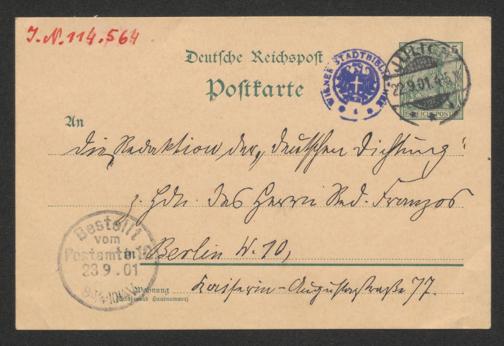 J.N. 114.564
Deutsche Reichspost
Postkarte
WIENER STADTBIBLIOTHEK
JÜLICH
22.9.01.
5
REICHSPOST
An
die Redaktion der „deutschen Dichtung“
z. Hdn des Herrn Red. Franzos
Bestellt
vom
Postamte
23.9.01
Berlin W. 10,
Wohnung
Kaiserin-Augustastraße 77.